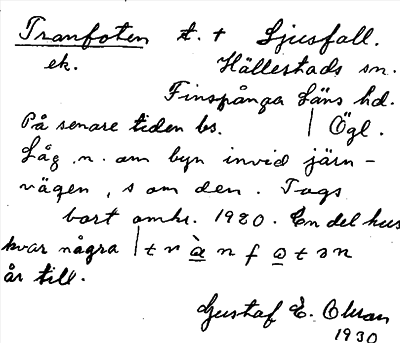 Tranfoten t. t Ljusfall.
ek. Hällestads sn.
Finspånga Läns hd.
På senare tiden bs. | Ögl.
Låg n. om byn invid järn-
vägen, s om den. Togs
bort omkr. 1920. En del hus
kvar några | t r à n f o t ə n
år till.
Gustaf E.
1930